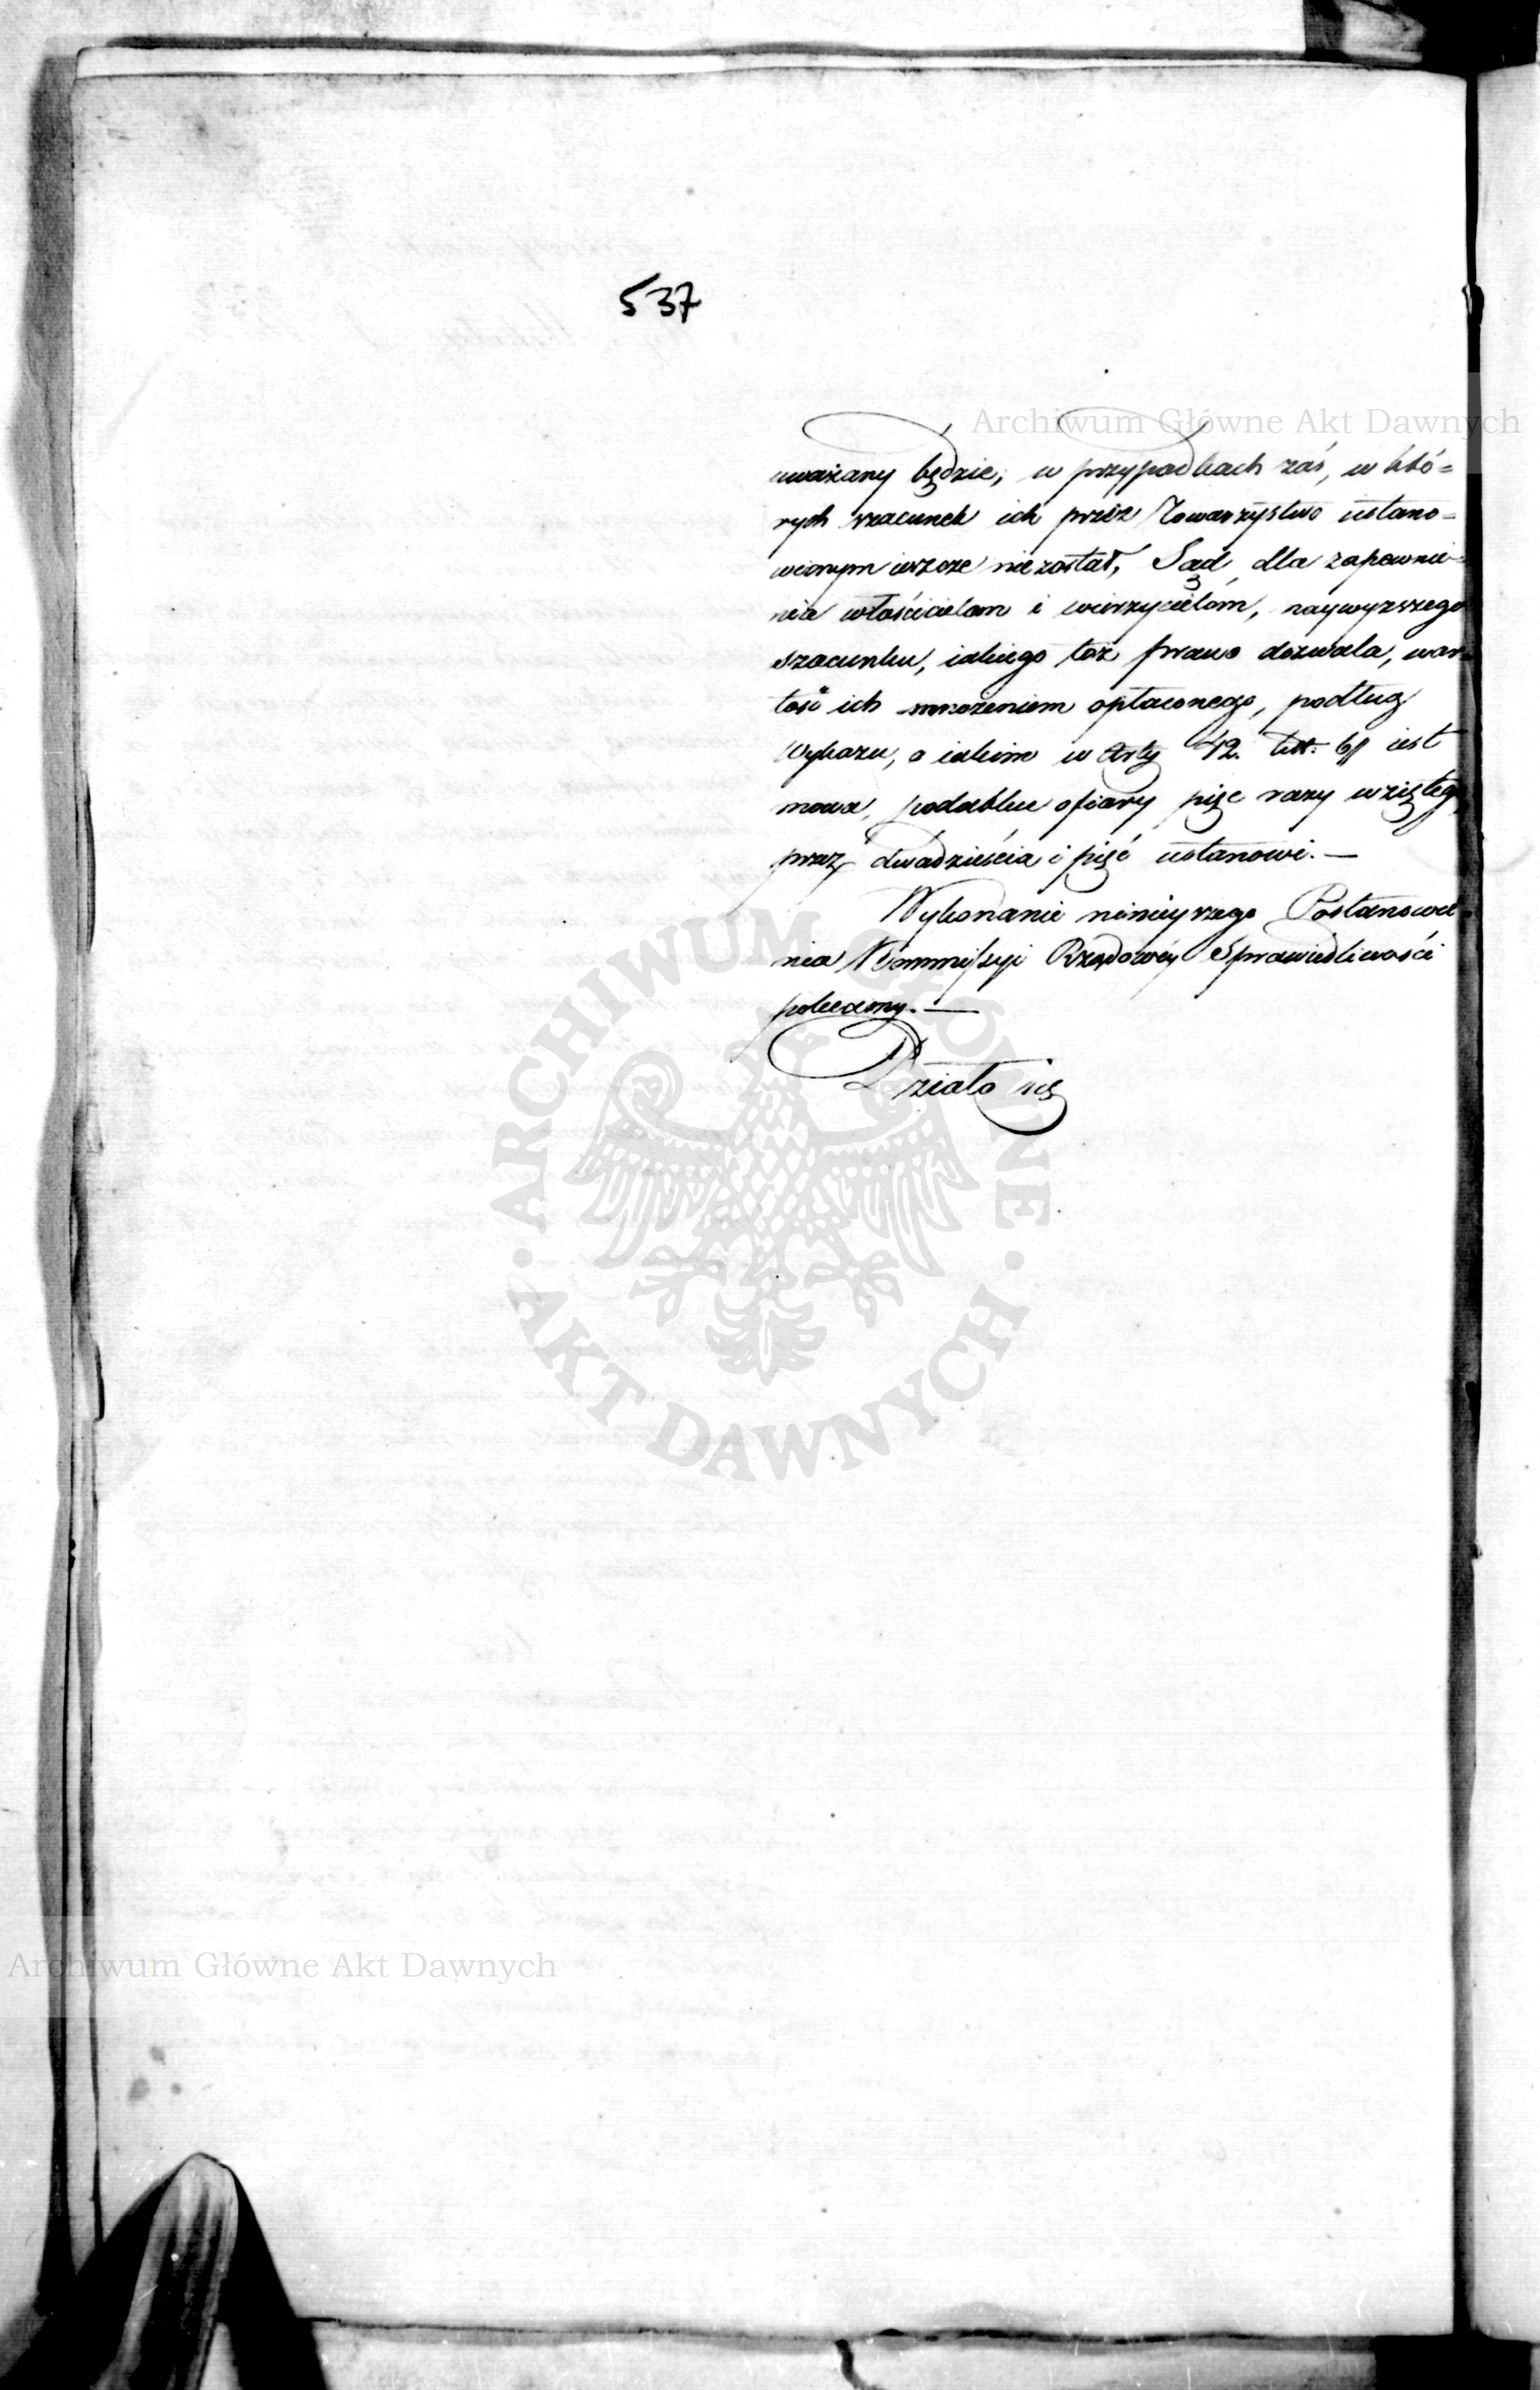 537
Archiwum Główne Akt Dawnych
uważany będzie; w przypadkach zaś, w któ=
rych szacunek ich przez Towarzystwo ustano=
wionym ieszcze niezostał, Sąd, dla zapewnie=
nia właścicielom i wierzycielom, naywyzszego
szacunku, iakiego toż prawo dozwala, war=
tość ich mnożeniem opłaconego, podług
Wykazu, o iakim w Arty 42. lit: b) iest
mowa, podatku ofiary pięc razy wziętego
przez dwadzieścia i pięć ustanowi.—
Wykonanie ninieyszego Postanowie
nia Kommissyi Rządowéy Sprawiedliwości
polecamy.—
Działo się
ARCHIWUM GŁÓWNE
AKT DAWNYCH
Archiwum Główne Akt Dawnych